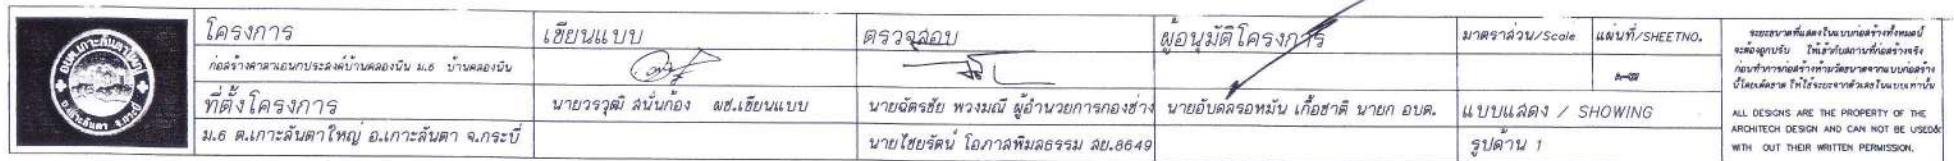 อบต.เกาะลันตาใหญ่
อ.เกาะลันตา จ.กระบี่
โครงการ
ก่อสร้างศาลาเอนกประสงค์บ้านคลองนิน ม.6 บ้านคลองนิน
ที่ตั้งโครงการ
ม.6 ต.เกาะลันตาใหญ่ อ.เกาะลันตา จ.กระบี่
เขียนแบบ
นายวรวุฒิ สนั่นก้อง ผช.เขียนแบบ
ตรวจสอบ
นายฉัตรชัย พวงมณี ผู้อำนวยการกองช่าง
นายไชยรัตน์ โอภาลพิมลธรรม สย.8649
ผู้อนุมัติโครงการ
นายอับดลรอหมัน เกื้อชาติ นายก อบต.
มาตราส่วน/Scale
แผ่นที่/SHEETNO.
แบบแสดง / SHOWING
รูปด้าน 1
ระยะขนาดที่แสดงในแบบก่อสร้างทั้งหมดนี้
จะต้องถูกปรับ ให้เข้ากับสถานที่ก่อสร้างจริง
ก่อนทำการก่อสร้างห้ามวัดขนาดจากแบบก่อสร้าง
นี้โดยเด็ดขาด ให้ใช้ระยะจากตัวเลขในแบบเท่านั้น
ALL DESIGNS ARE THE PROPERTY OF THE
ARCHITECH DESIGN AND CAN NOT BE USED&
WITH OUT THEIR WRITTEN PERMISSION.